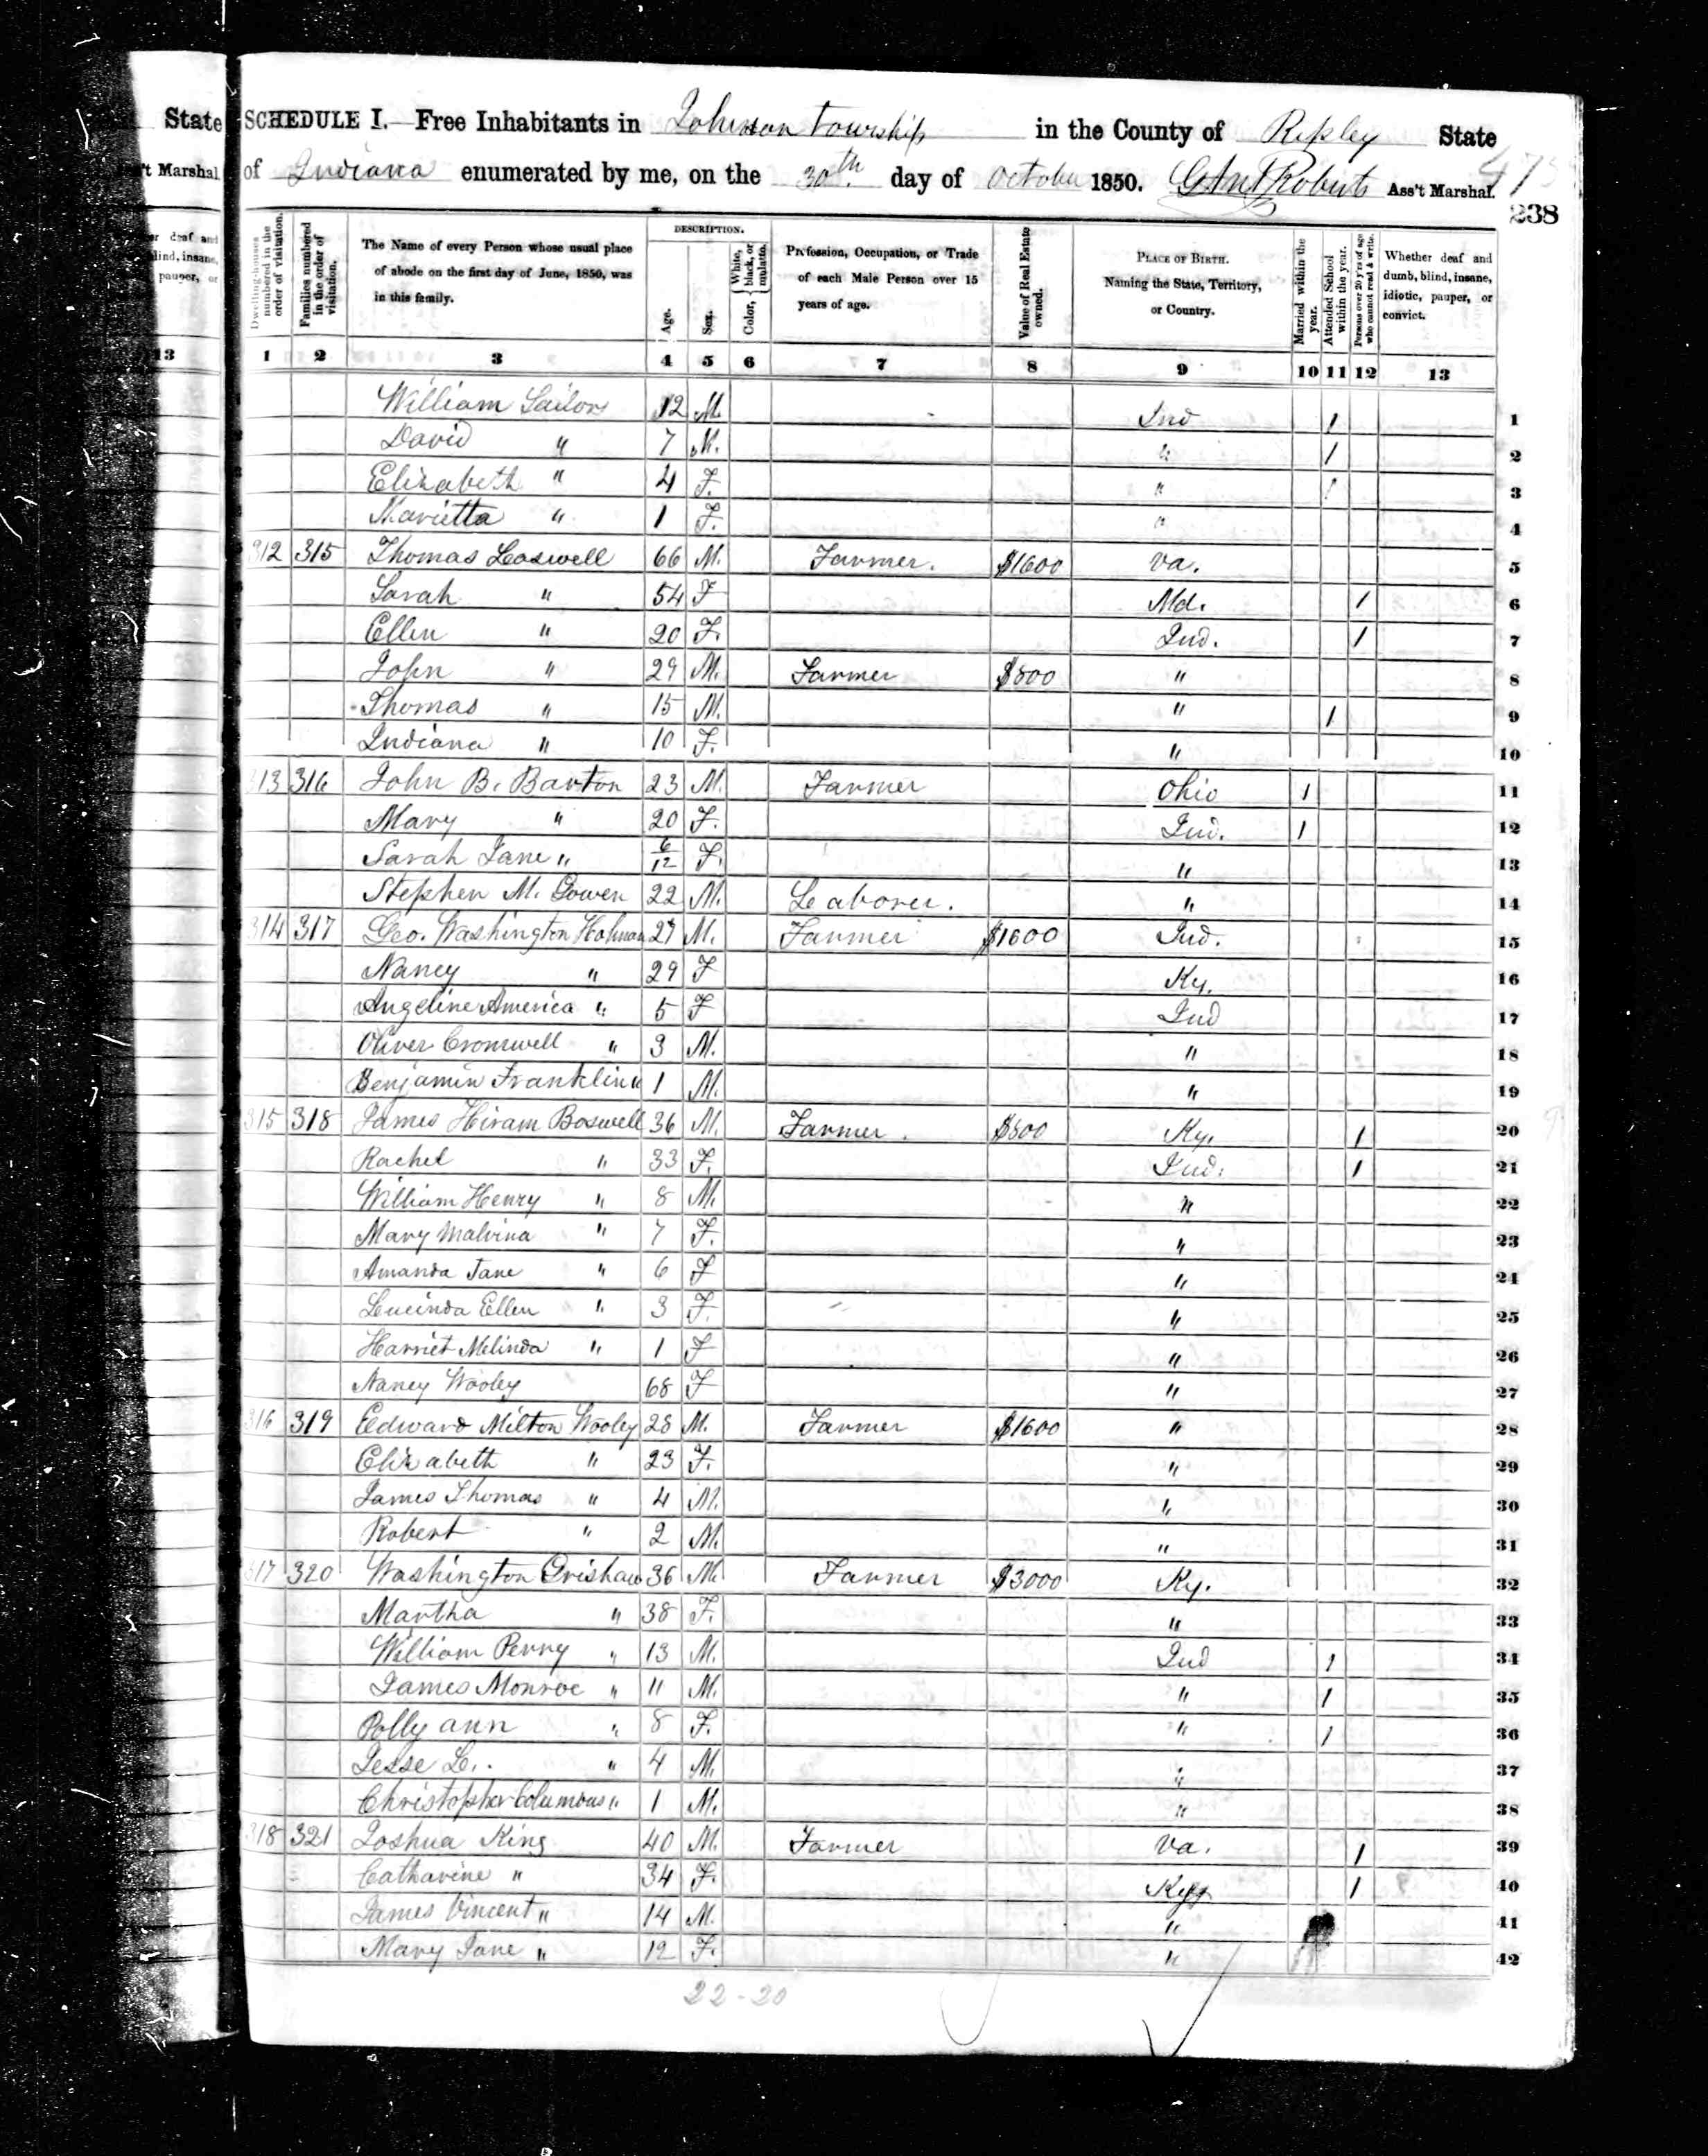 State
SCHEDULE I. Free Inhabitants in Johnson Township in the County of Ripley State
't Marshal
of Indiana enumerated by me, on the 30th day of October 1850. Roberts Ass't Marshal.
238
er deaf and
lind, insane,
pauper, or
13
Dwelling-houses numbered in the order of visitation.
Families numbered in the order of visitation.
The Name of every Person whose usual place of abode on the first day of June, 1850, was in this family.
DESCRIPTION.
Age.
Sex.
Color, White, black, or mulatto.
Profession, Occupation, or Trade of each Male Person over 15 years of age.
Value of Real Estate owned.
PLACE OF BIRTH. Naming the State, Territory, or Country.
Married within the year.
Attended School within the year.
Persons over 20 y'rs of age who cannot read & write.
Whether deaf and dumb, blind, insane, idiotic, pauper, or convict.
1 2 3 4 5 6 7 8 9 10 11 12 13
William Sailors 12 M. Ind 1 1
David " 7 M. " 1 2
Elizabeth " 4 F. " 1 3
Marietta " 1 F. " 4
312 315 Thomas 66 M. Farmer. $1600 Va. 5
Sarah " 54 F Md. 1 6
Ellen " 20 F. Ind. 1 7
John " 29 M. Farmer $800 " 8
Thomas " 15 M. " 1 9
Indiana " 10 F. " 10
313 316 John B. Barton 23 M. Farmer Ohio 1 11
Mary " 20 F. Ind. 1 12
Sarah Jane " 6/12 F. " 13
Stephen M. 22 M. Leaborer. " 14
314 317 Geo. Washington Holman 27 M. Farmer $1600 Ind. 15
Nancy " 29 F Ky. 16
Angeline America " 5 F Ind 17
Oliver Cromwell " 3 M. " 18
Benjamin Franklin " 1 M. " 19
315 318 James Hiram Boswell 36 M. Farmer. $800 Ky. 1 20
Rachel " 33 F. Ind. 1 21
William Henry " 8 M. " 22
Mary Malvina " 7 F. " 23
Amanda Jane " 6 F " 24
Lucinda Ellen " 3 F. " 25
Harriet Melinda " 1 F " 26
Nancy Wooley 68 F " 27
316 319 Eedward Milton Wooley 28 M. Farmer $1600 " 28
Elizabeth " 23 F. " 29
James Thomas " 4 M. " 30
Robert " 2 M. " 31
317 320 Washington 36 M. Farmer $3000 Ky. 32
Martha " 38 F. " 33
William Perry " 13 M. Ind 1 34
James Monroe " 11 M. " 1 35
Polly ann " 8 F. " 1 36
Jesse L. " 4 M. " 37
Christopher Columbus " 1 M. " 38
318 321 Joshua King 40 M. Farmer Va. 1 39
Catharine " 34 F. Ky 1 40
James Vincent " 14 M. " 41
Mary Jane " 12 F. " 42
22-20